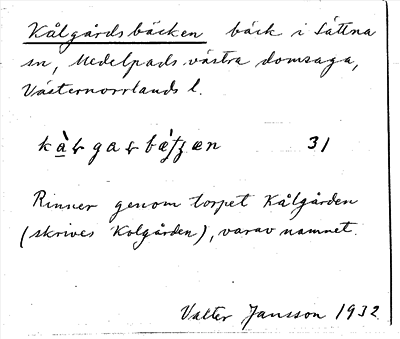 Kålgårdsbäcken bäck i Sättna
sn, Medelpads västra domsaga,
Västernorrlands l.
31
Rinner genom torpet Kålgården
(skrives Kolgården), varav namnet.
Valter Jansson 1932